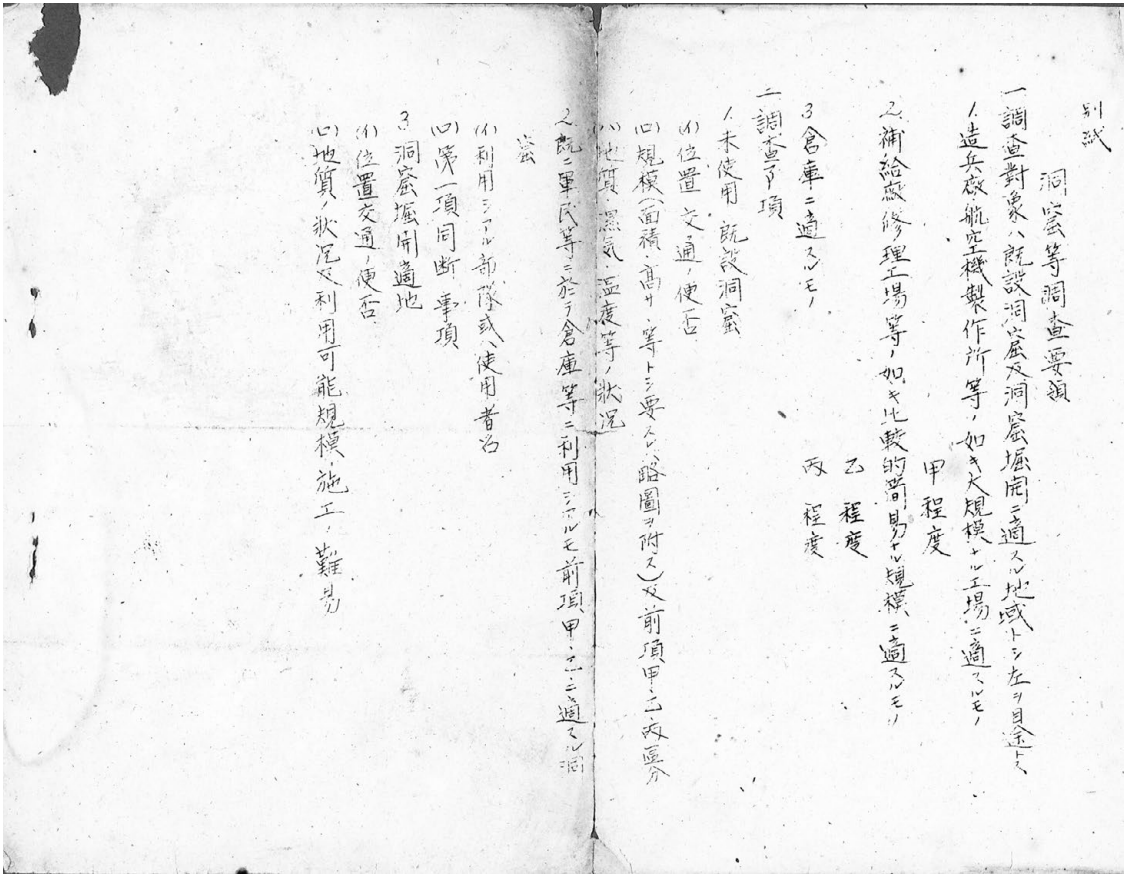 別紙
洞窟等調査要領
一調査對象ハ既設洞窟及洞窟掘開ニ適スル地域トシ左ヲ目途トス
1.造兵廠航空機製作所等ノ如キ大規模ナル工場ニ適スルモノ
甲程度
2.補給廠修理工場等ノ如キ比較的簡易ナル規模ニ適スルモノ
乙程度
3倉庫ニ適スルモノ
丙程度
二調査事項
1.未使用既設洞窟
(イ)位置交通ノ便否
(ロ)規模(面積・高サ・等トシ要スレハ略圖ヲ附ス)及前項甲・乙丙區分
(ハ)地質・濕気・温度等ノ狀況
2.既ニ軍民等ニ於テ倉庫等ニ利用シアルモ前項甲・乙ニ適スル洞
窟
(イ)利用シアル部隊或ハ使用者名
(ロ)第一項同断事項
3.洞窟掘開適地
(イ)位置交通ノ便否
(ロ)地質ノ狀況及利用可能規模・施工ノ難易